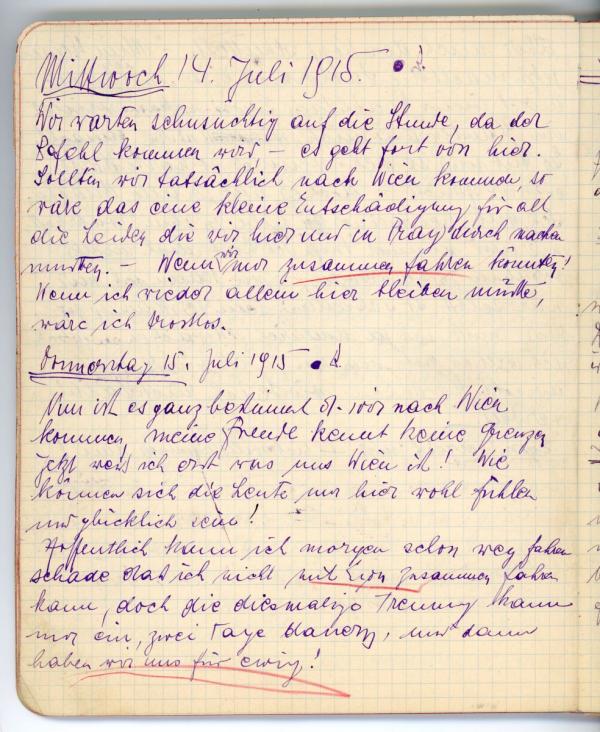 Mittwoch 14. Juli 1915.
Wir warten sehnsüchtig auf die Stunde, da der
Befehl kommen wird, – es geht fort von hier.
Sollten wir tatsächlich nach Wien kommen, so
wäre das eine kleine Entschädigung für all
die Leiden die wir hier und in Prag durch machen
mußten. – Wenn wir nur zusammen fahren könnten!
Wenn ich wieder allein hier bleiben müßte,
wäre ich trostlos.
Donnerstag 15. Juli 1915
Nun ist es ganz bestimmt d. wir nach Wien
kommen, meine Freude kennt keine Grenzen
jetzt weiß ich erst was uns Wien ist! Wie
können sich die Leute nur hier wohl fühlen
und glücklich sein!
Hoffentlich kann ich morgen schon weg fahren
schade daß ich nicht mit zusammen fahren
kann, doch die diesmalige Trennung kann
nur ein, zwei Tage dauern, und dann
haben wir uns für ewig!